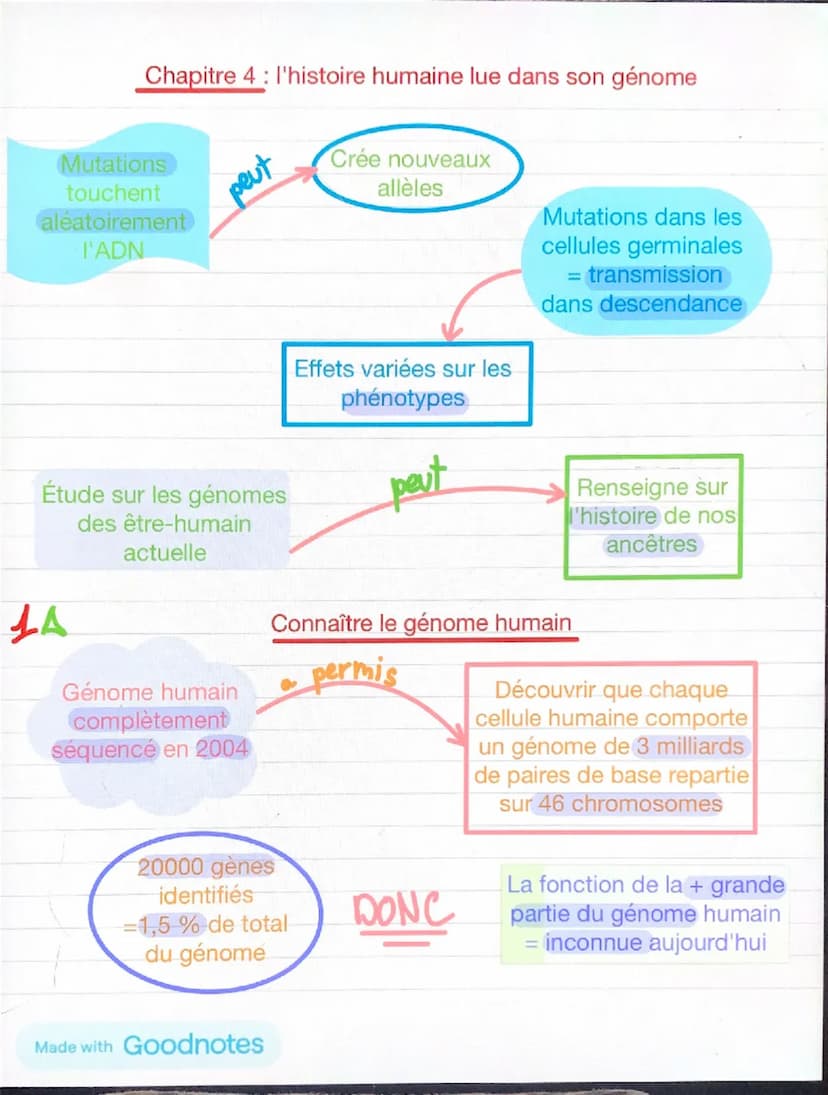 Chapitre 4 : l'histoire humaine lue dans son génome
Mutations
touchent
aléatoirement
l'ADN
peut
Crée nouveaux
allèles
Mutations dans les
cellules germinales
= transmission
dans descendance
Effets variées sur les
phénotypes
Étude sur les génomes
des être-humain
actuelle
peut
Renseigne sur
l'histoire de nos
ancêtres
1A
Connaître le génome humain
Génome humain
complètement
séquencé en 2004
a permis
Découvrir que chaque
cellule humaine comporte
un génome de 3 milliards
de paires de base repartie
sur 46 chromosomes
20000 gènes
identifiés
=1,5 % de total
du génome
DONC
La fonction de la + grande
partie du génome humain
= inconnue aujourd'hui
Made with Goodnotes